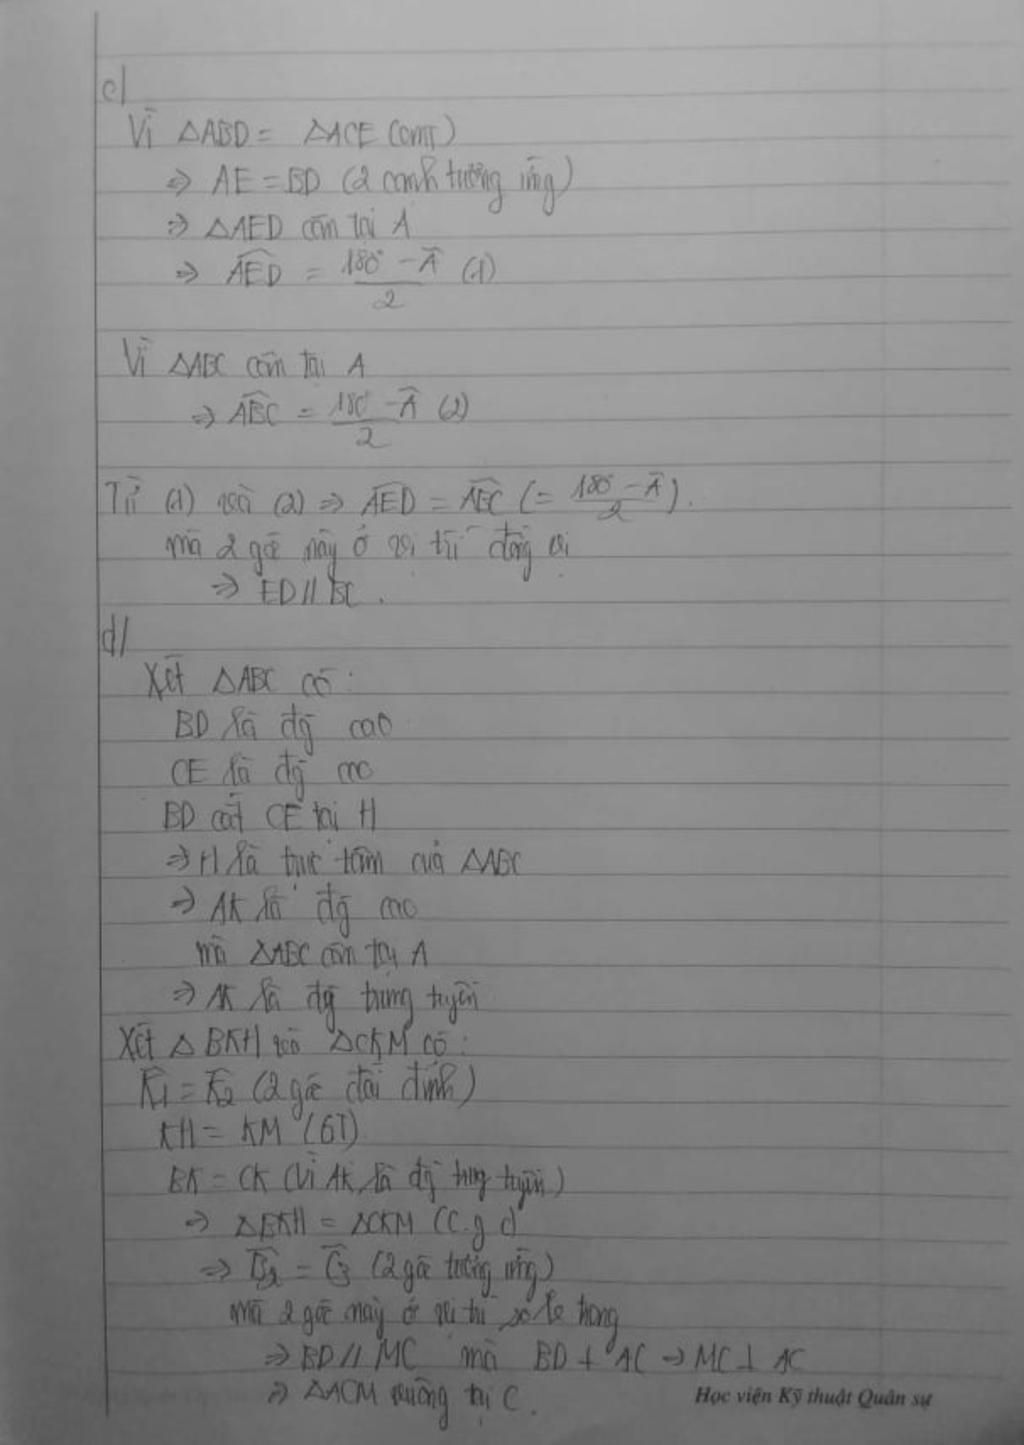 c/
Vì △ABD = △ACE (cmt)
⇒ AE = BD (2 cạnh tương ứng)
⇒ △AED cân tại A
⇒ \widehat{AED} = \frac{180° - \widehat{A}}{2} (1)
Vì △ABC cân tại A
⇒ \widehat{ABC} = \frac{180° - \widehat{A}}{2} (2)
Từ (1) và (2) ⇒ \widehat{AED} = \widehat{AEC} (= \frac{180° - \widehat{A}}{2}).
mà 2 góc này ở vị trí đồng vị
⇒ ED // BC.
d/
Xét △ABC có:
BD là đg cao
CE là đg cao
BD cắt CE tại H
⇒ H là trực tâm của △ABC
⇒ AK là đg cao
mà △ABC cân tại A
⇒ AK là đg trung tuyến
Xét △BKH và △CKM có:
\widehat{K1} = \widehat{K2} (2 góc đối đỉnh)
KH = KM (GT)
BK = CK (vì AK là đg trung tuyến)
⇒ △BKH = △CKM (c.g.c)
⇒ \widehat{B2} = \widehat{C3} (2 góc tương ứng)
mà 2 góc này ở vị trí so le trong
⇒ BD // MC mà BD ⊥ AC → MC ⊥ AC
⇒ △ACM vuông tại C.
Học viện Kỹ thuật Quân sự